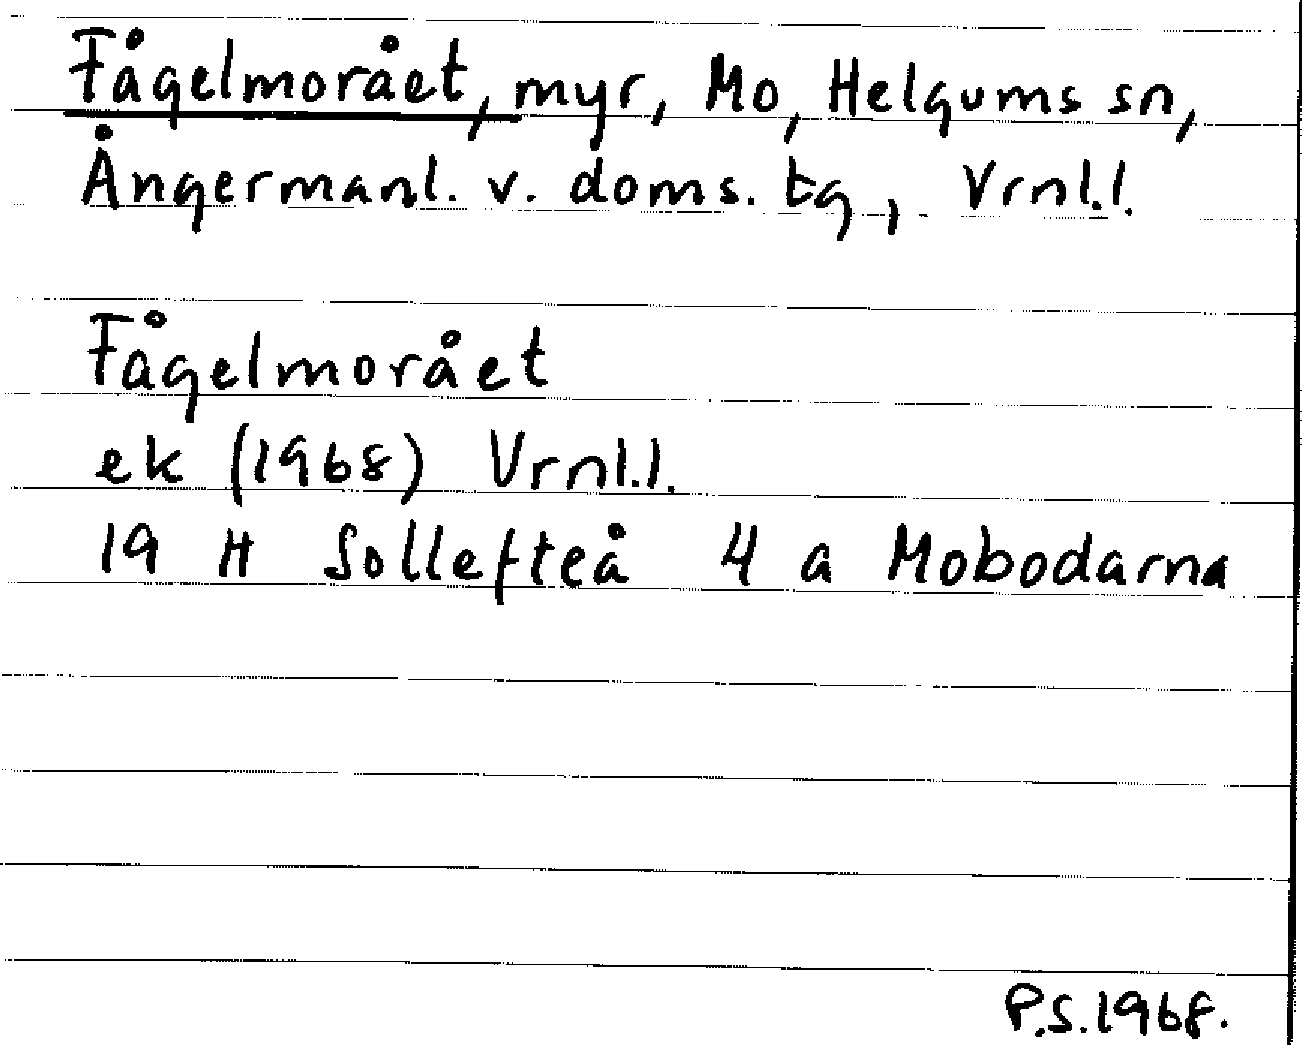 Fågelmorået, myr, Mo, Helgums sn,
Ångermanl. v. doms. tg, Vrnl.l.
Fågelmorået
ek (1968) Vrnl.l.
19 H Sollefteå 4 a Mobodarna
P.S.1968.